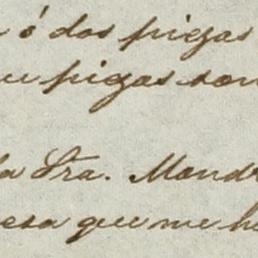 ó dos piezas
piezas son
la Sra. Mond
esa que me h